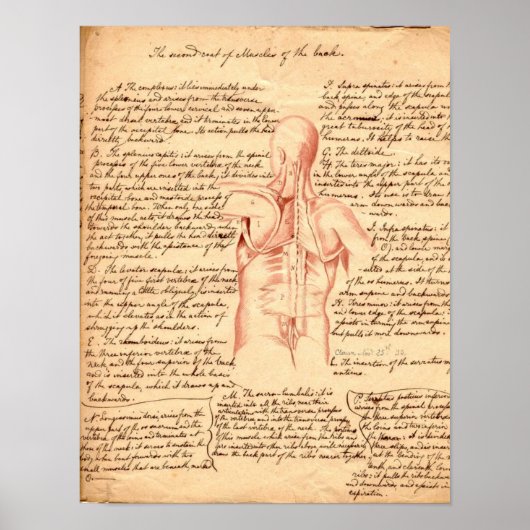 The second coat of Muscles of the back.
A. The complexus: it lies immediately under
the splenius and arises from the transverse
processes of the four lower cervical and seven upper-
most dorsal vertebra and it terminates in the lower
part of the occipital bone. Its action pulls the head
directly backward.
B. The splenius capitis: it arises from the spinal
processes of the five lower vertebra of the neck
and the four upper ones of the back; it devides into
two parts, which are inserted into the
occipital bone and mastoide process of
the temporal bone. When only one side
of this muscle acts, it draws the head
towards the shoulder backwards, when
the act together, it pulls the head directly
backwards with the assistance of the
foregoing muscle.
D. The levator scapula: it arises from
the four of five first vertebra of the neck
and running a little obliquely, is inserted
into the upper angle of the scapula,
which it elevates as in the action of
shrugging up the shoulders.
E. The rhomboideus: it arises from
the three inferior vertebra of the
neck and the four superior of the back
and is inserted into the whole basis
of the scapula, which it draws up and
backwards.
N. Longissimus dorsi, arises from the
upper part of the os sacrum and the
vertebra of the loins and terminates at
of the neck: it arises beneath the
back, when bent forwards with two
small muscles that are beneath
M. The sacro-lumbalis: it is
inserted into all the ribs near their
articulation with the transverse processes
of the last vertebra of the neck.
This muscle, which arises from
are inserted into other ribs
draw the back part of the ribs nearer together.
F. Supra spinatus; it arises from
back spine and edge of the scapula
and passes along the scapula
the acromion; it is inserted into
great tuberosity of the head of
humeras. It helps to raise the
G. The deltoide.
H. The teres major: it has its
in the lower angle of the scapula and
inserted into the upper part of the
humerus. Its use is to draw
arm downwards and back-
wards.
I. Infra spinatus: it
from the back spine
and lower
and is
serted at the side of the
of the os humerus. It turns
arm supine and backwards
K. Teres minor: it arises from
and lower edge of the scapula.
assists in turning the arm supine
but pulls it more backwards.
L. The insertion of the serratus
anticus.
P. Serratus posticus inferior
arises from the spinal processes
of the three superior vertebra of
the loins and two inferior
the back: it is
three slips and
at the bendings of the
tenth and eleventh
ribs: it pulls the ribs backwards
and downwards and assists in
expiration.